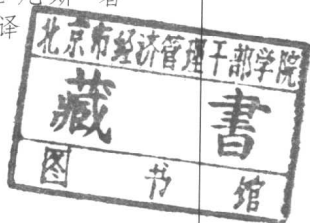 著
译
北京市经济管理干部学院
藏書
图书馆